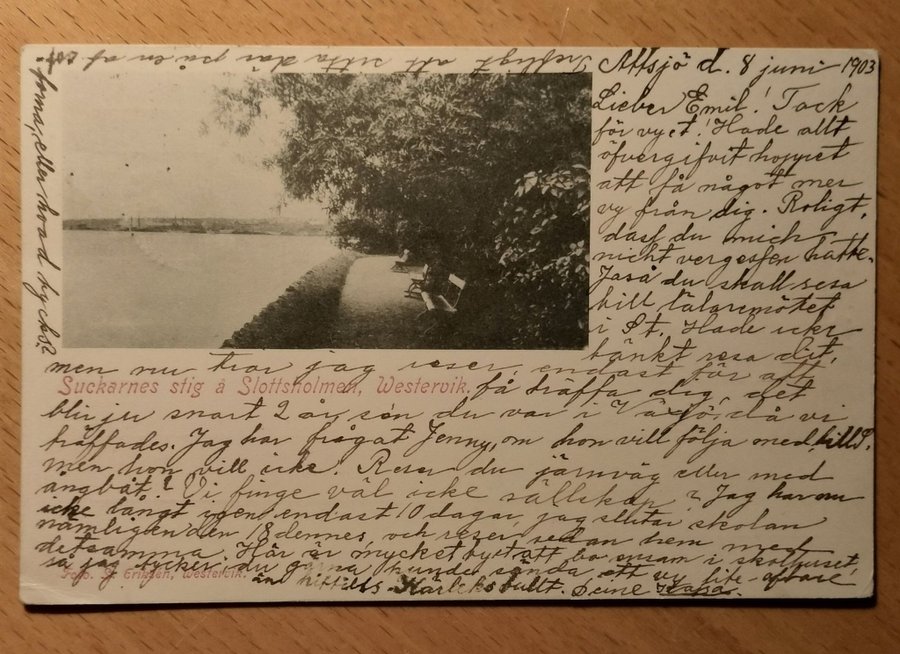 Attsjö d. 8 juni 1903
Lieber Emil! Tack
för vyet! Hade allt
öfvergifvit hoppet
att få något mer
vy från dig. Roligt,
dass du mich
nicht vergessen hatte.
Jaså du skall resa
till läraremötet
i St. Hade icke
tänkt resa dit,
men nu tror jag reser, endast för att
Suckarnes stig å Slottsholmen, Westervik.
få träffa dig, det
blir ju snart 2 år sen du var i då vi
träffades. Jag har frågat Jenny, om hon vill följa med till
men hon vill icke. Reser du järnväg eller med
ångbåt? Vi finge väl icke sällskap? Jag har nu
icke långt igen, endast 10 dagar, jag slutar skolan
nämligen den 18 dennes, och reser sedan hem med
detsamma. Här är mycket tyst att bo ensam i skolhuset,
så jag tycker, du gärna kunde sända ett vy lite oftare
Foto. Eriksen, Westervik.
än hittills. Kärleksfullt. Deine
Trefligt att sitta där på en af
sofforna, eller hvad tycks?